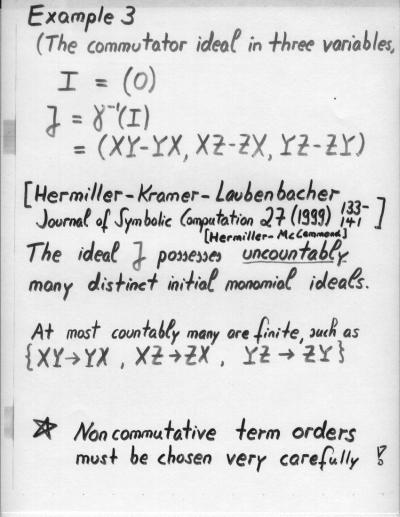 Example 3
(The commutator ideal in three variables,
I = (0)
J = γ⁻¹(I)
= (XY-YX, XZ-ZX, YZ-ZY)
[Hermiller-Kramer-Laubenbacher
Journal of Symbolic Computation 27 (1999) 133-141]
[Hermiller-McCammond]
The ideal J possesses uncountably
many distinct initial monomial ideals.
At most countably many are finite, such as
{XY→YX, XZ→ZX, YZ→ZY}
☆ Noncommutative term orders
must be chosen very carefully !